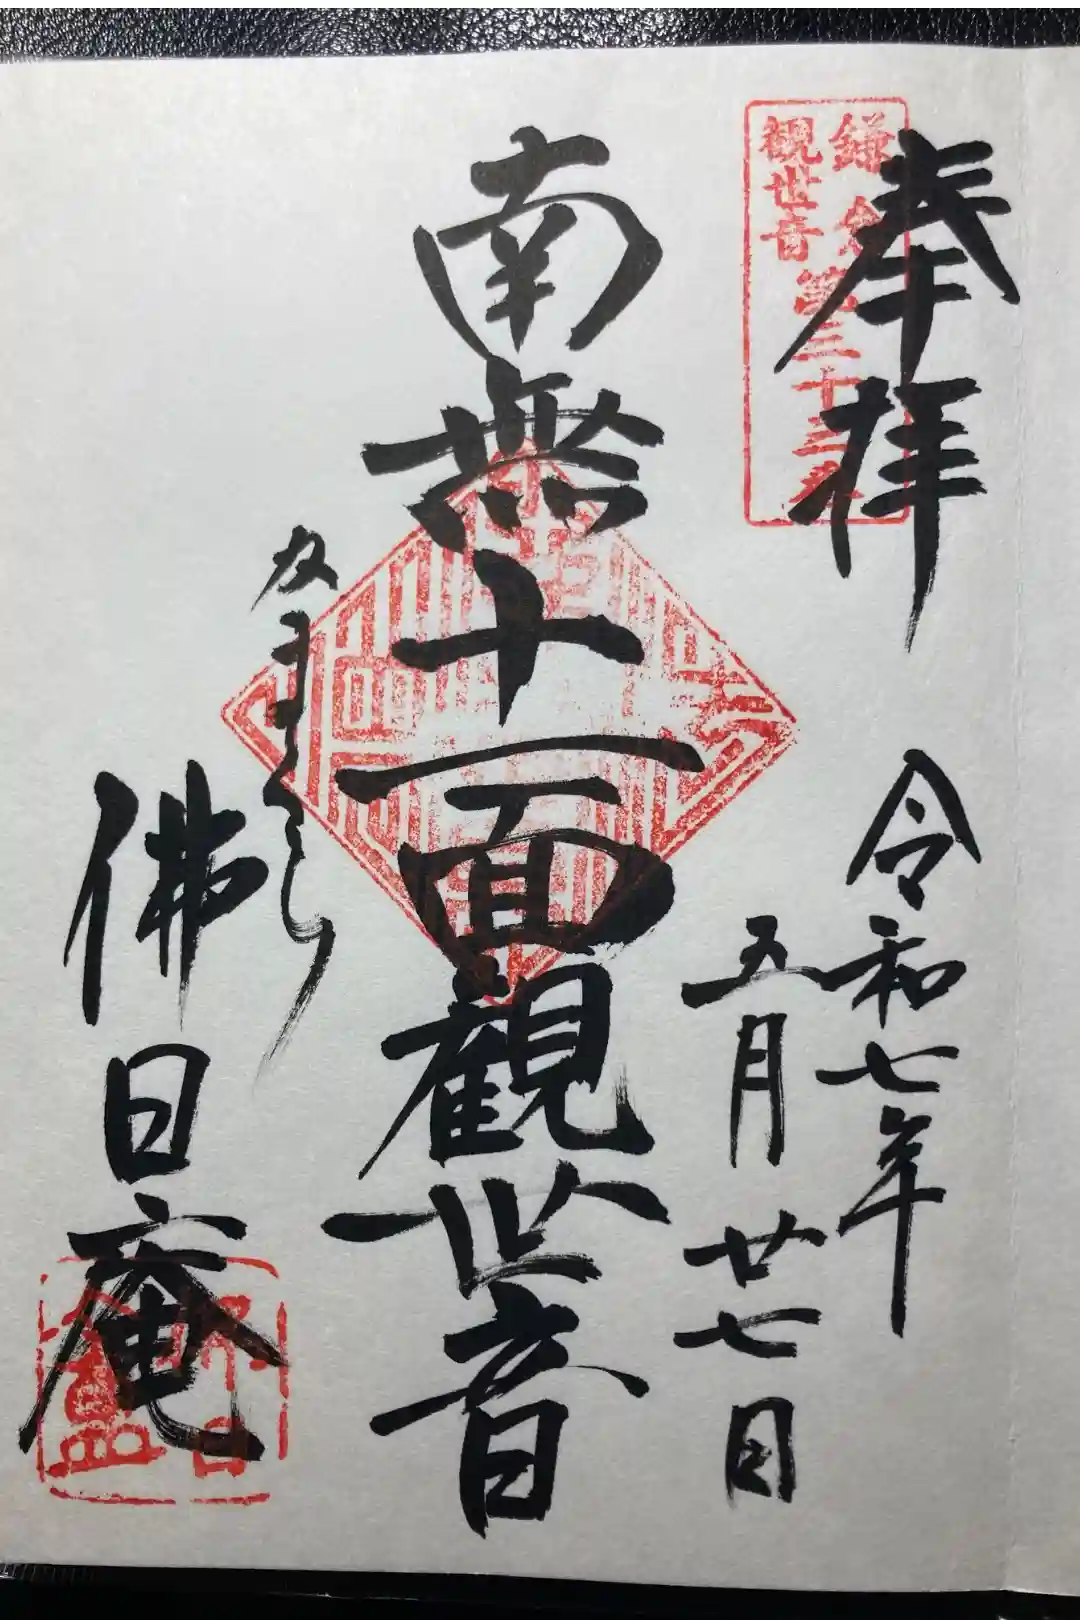 奉拝
鎌倉
観世音
第三十三番
令和七年
五月廿七日
南無十一面観世音
佛日庵